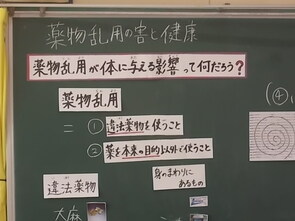 薬物乱用の害と健康
薬物乱用が体に与える影響って何だろう？
薬物乱用
＝ ① 違法薬物を使うこと
② 薬を本来の目的以外に使うこと
違法薬物
身のまわりにあるもの
大麻
(④